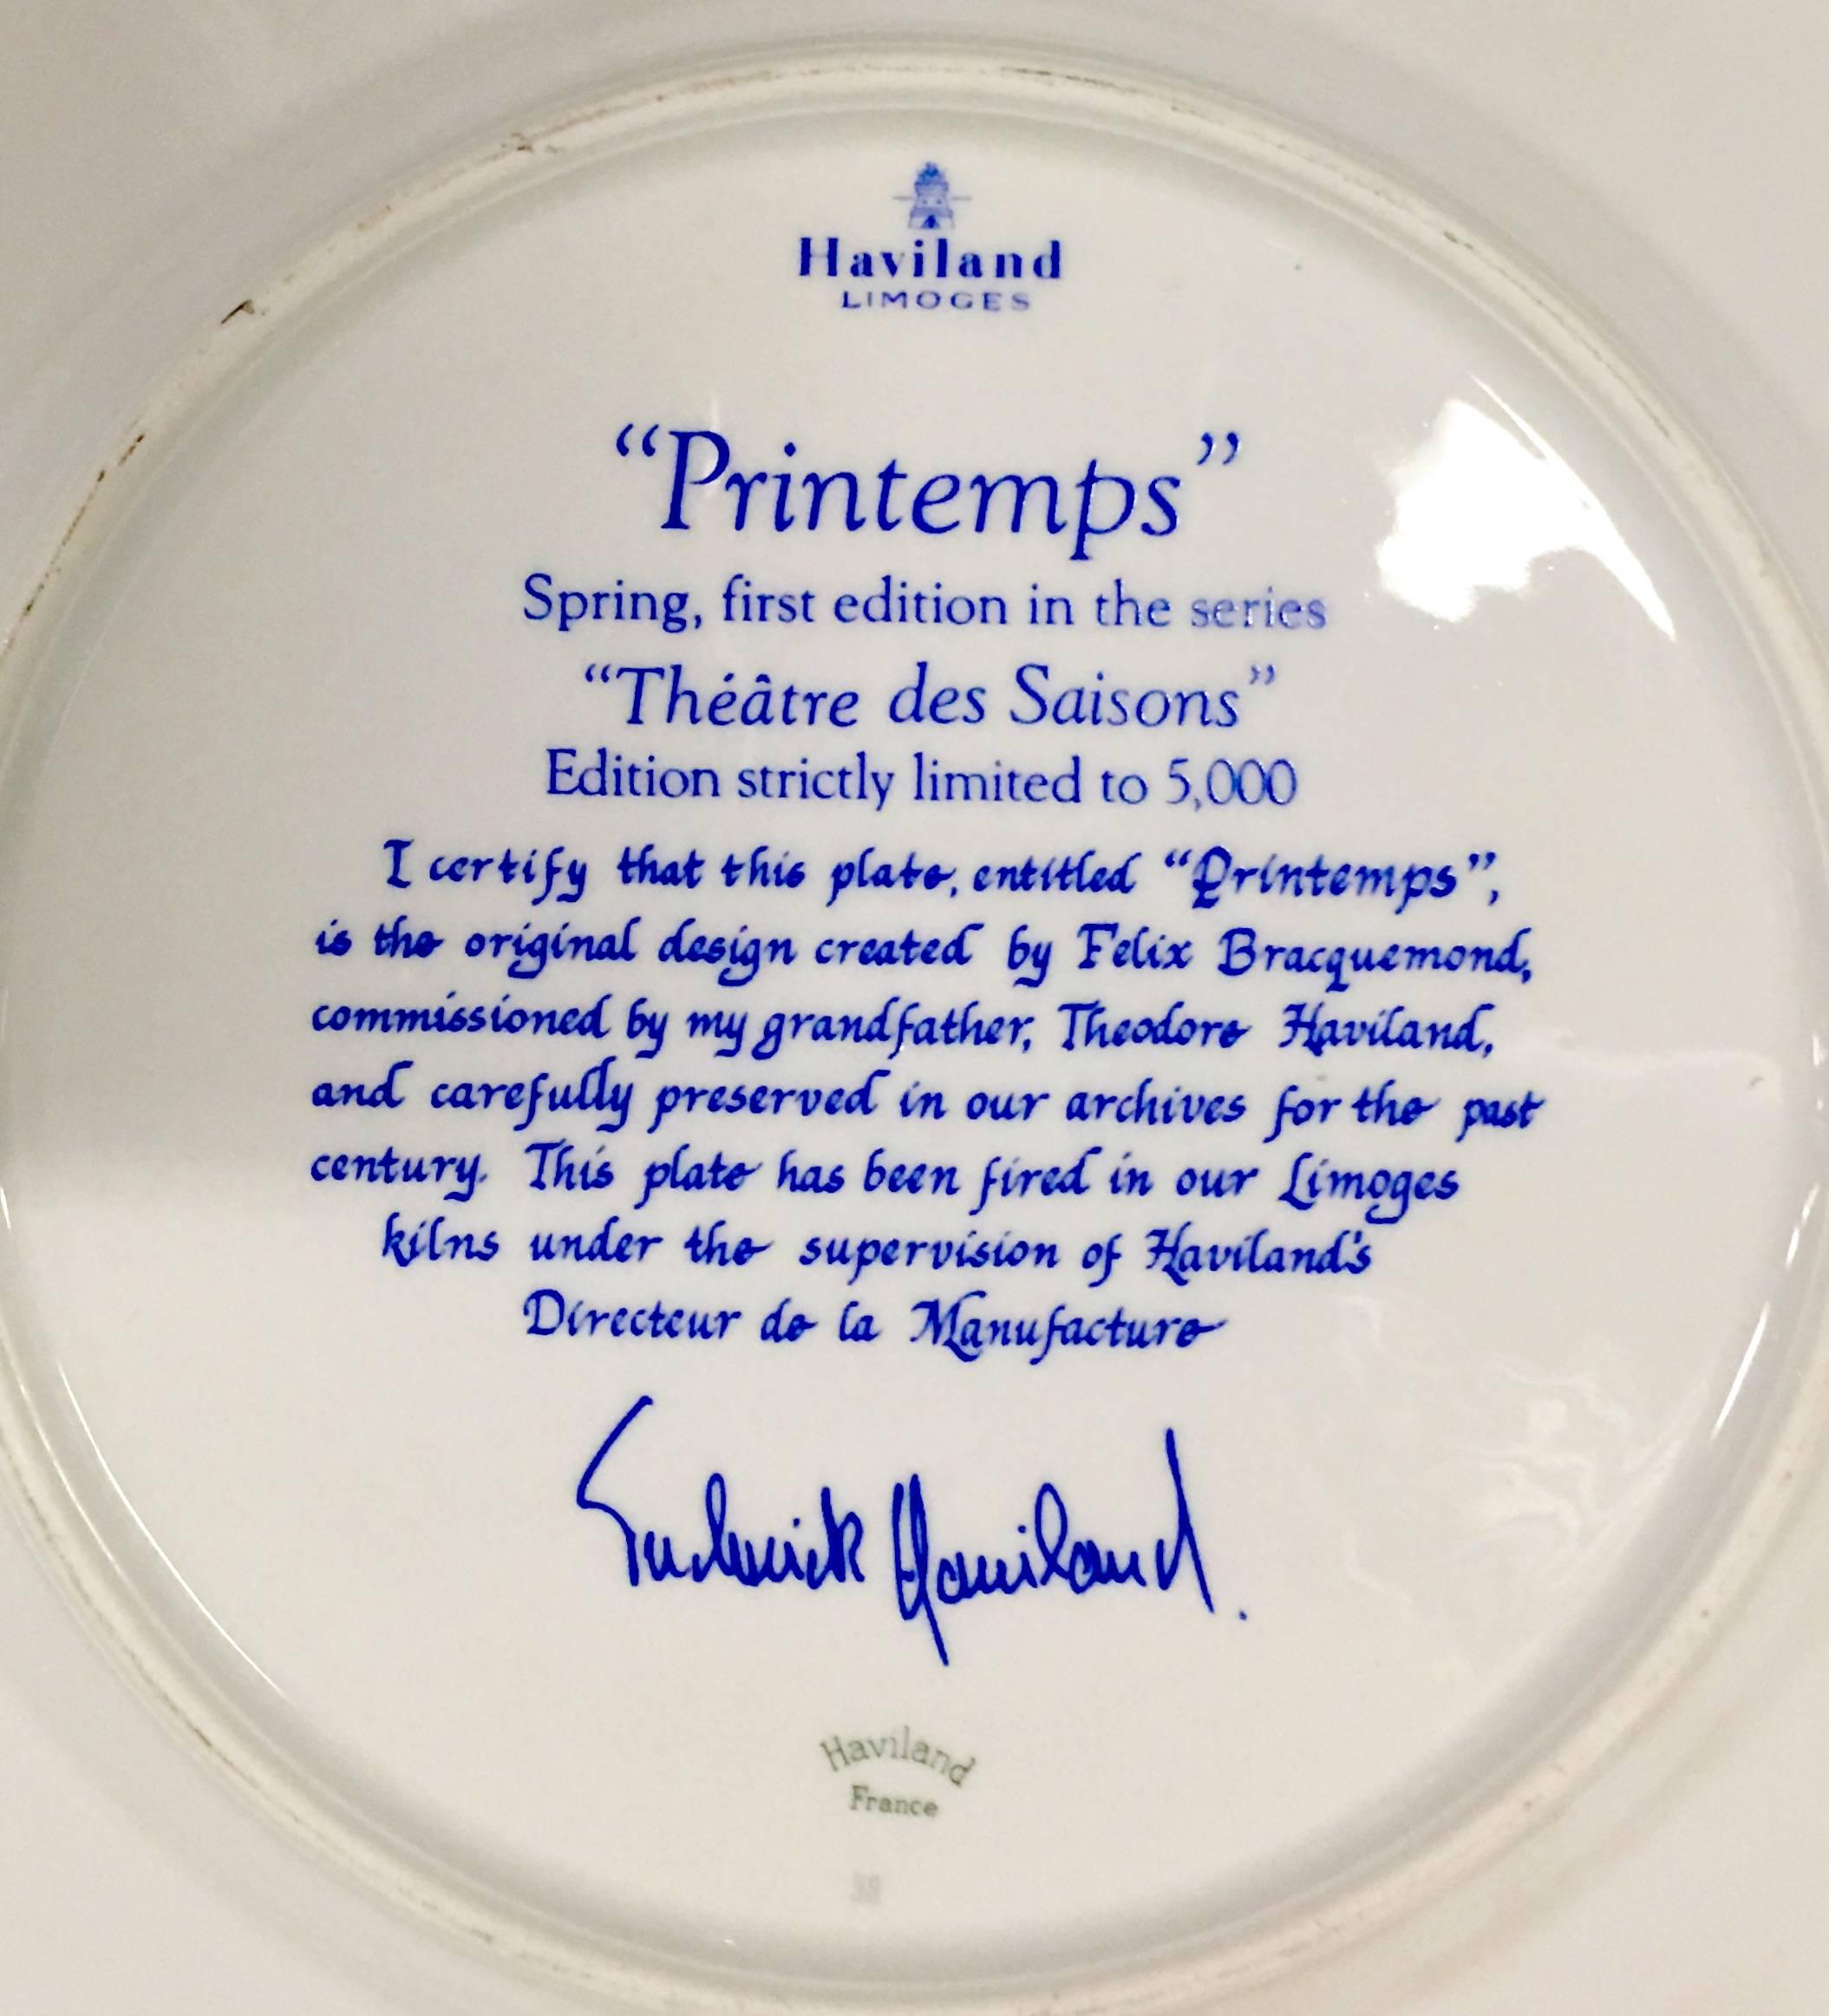 Haviland
LIMOGES
“Printemps”
Spring, first edition in the series
“Théâtre des Saisons”
Edition strictly limited to 5,000
I certify that this plate, entitled “Printemps”,
is the original design created by Felix Bracquemond,
commissioned by my grandfather, Theodore Haviland,
and carefully preserved in our archives for the past
century. This plate has been fired in our Limoges
kilns under the supervision of Haviland's
Directeur de la Manufacture
Frederick Haviland.
Haviland
France